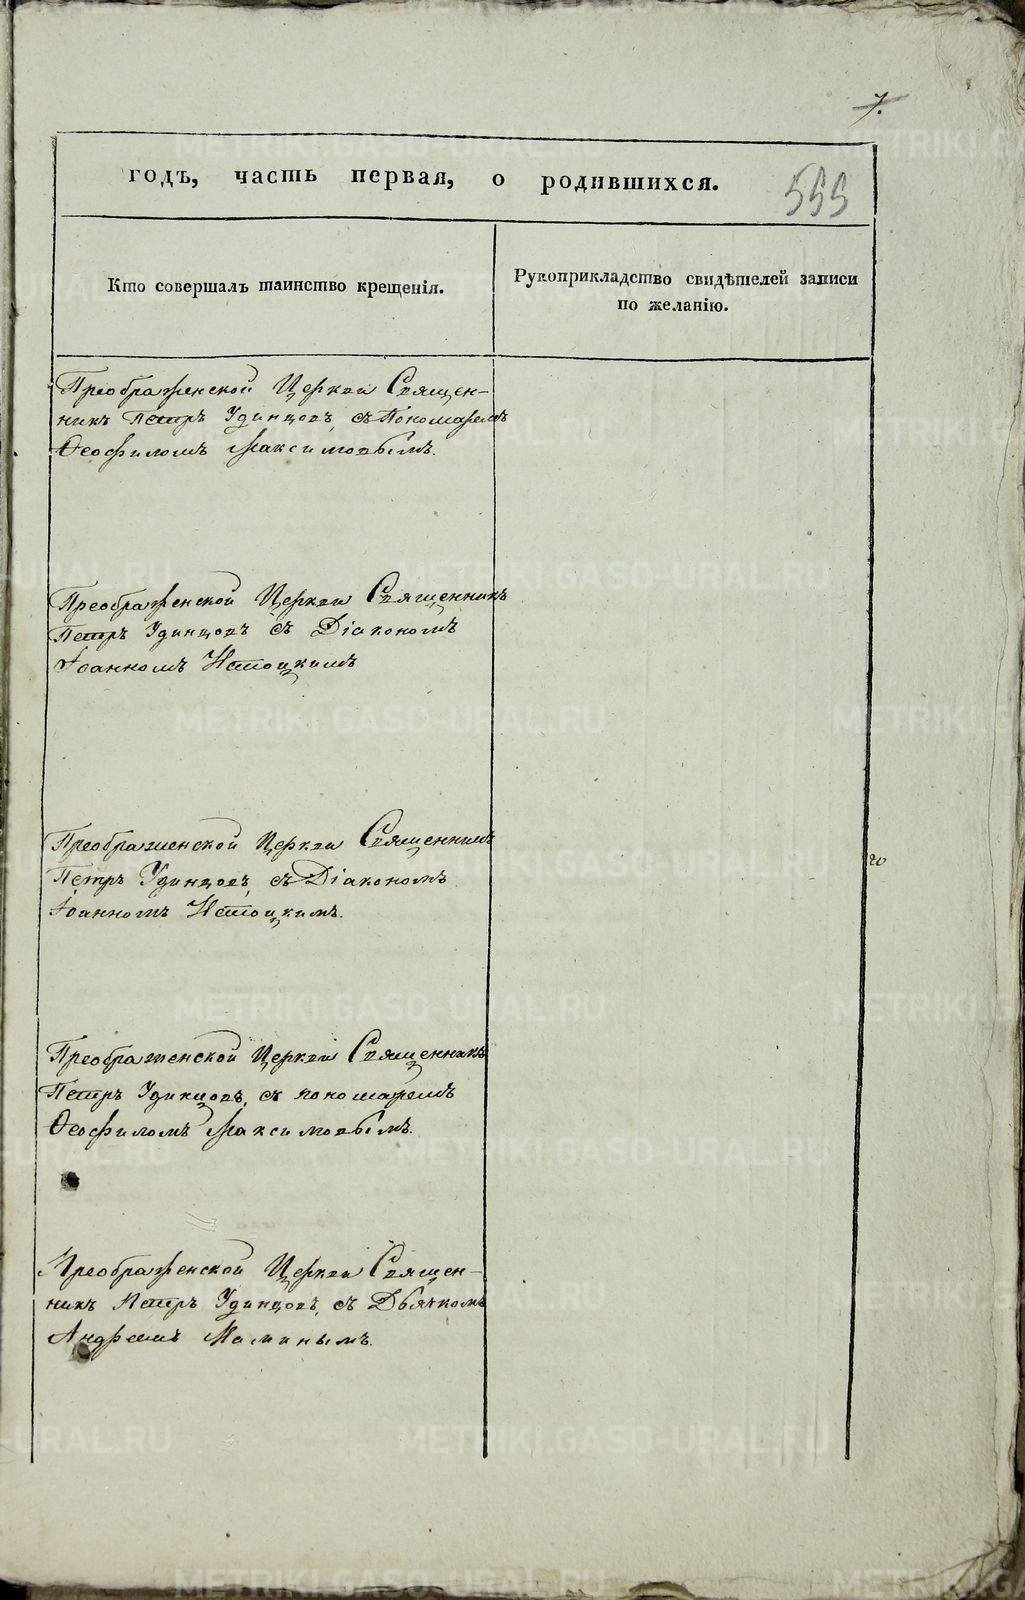 7.
годъ, часть первая, о родившихся. 555
Кто совершалъ таинство крещенія.
Рукоприкладство свидѣтелей записи
по желанію.
Преображенской Церкви Священ-
никъ Петръ Удинцовъ, съ Пономаремъ
Ѳеофиломъ Максимовымъ.
Преображенской Церкви Священникъ
Петръ Удинцовъ съ Діакономъ
Іоанномъ
Преображенской Церкви Священникъ
Петръ Удинцовъ, съ Діакономъ
Іоанномъ
Преображенской Церкви Священникъ
Петръ Удинцовъ, съ пономаремъ
Ѳеофиломъ Максимовымъ.
Преображенской Церкви Священ-
никъ Петръ Удинцовъ, съ Дьячкомъ
Андреемъ
METRIKI.GASO-URAL.RU